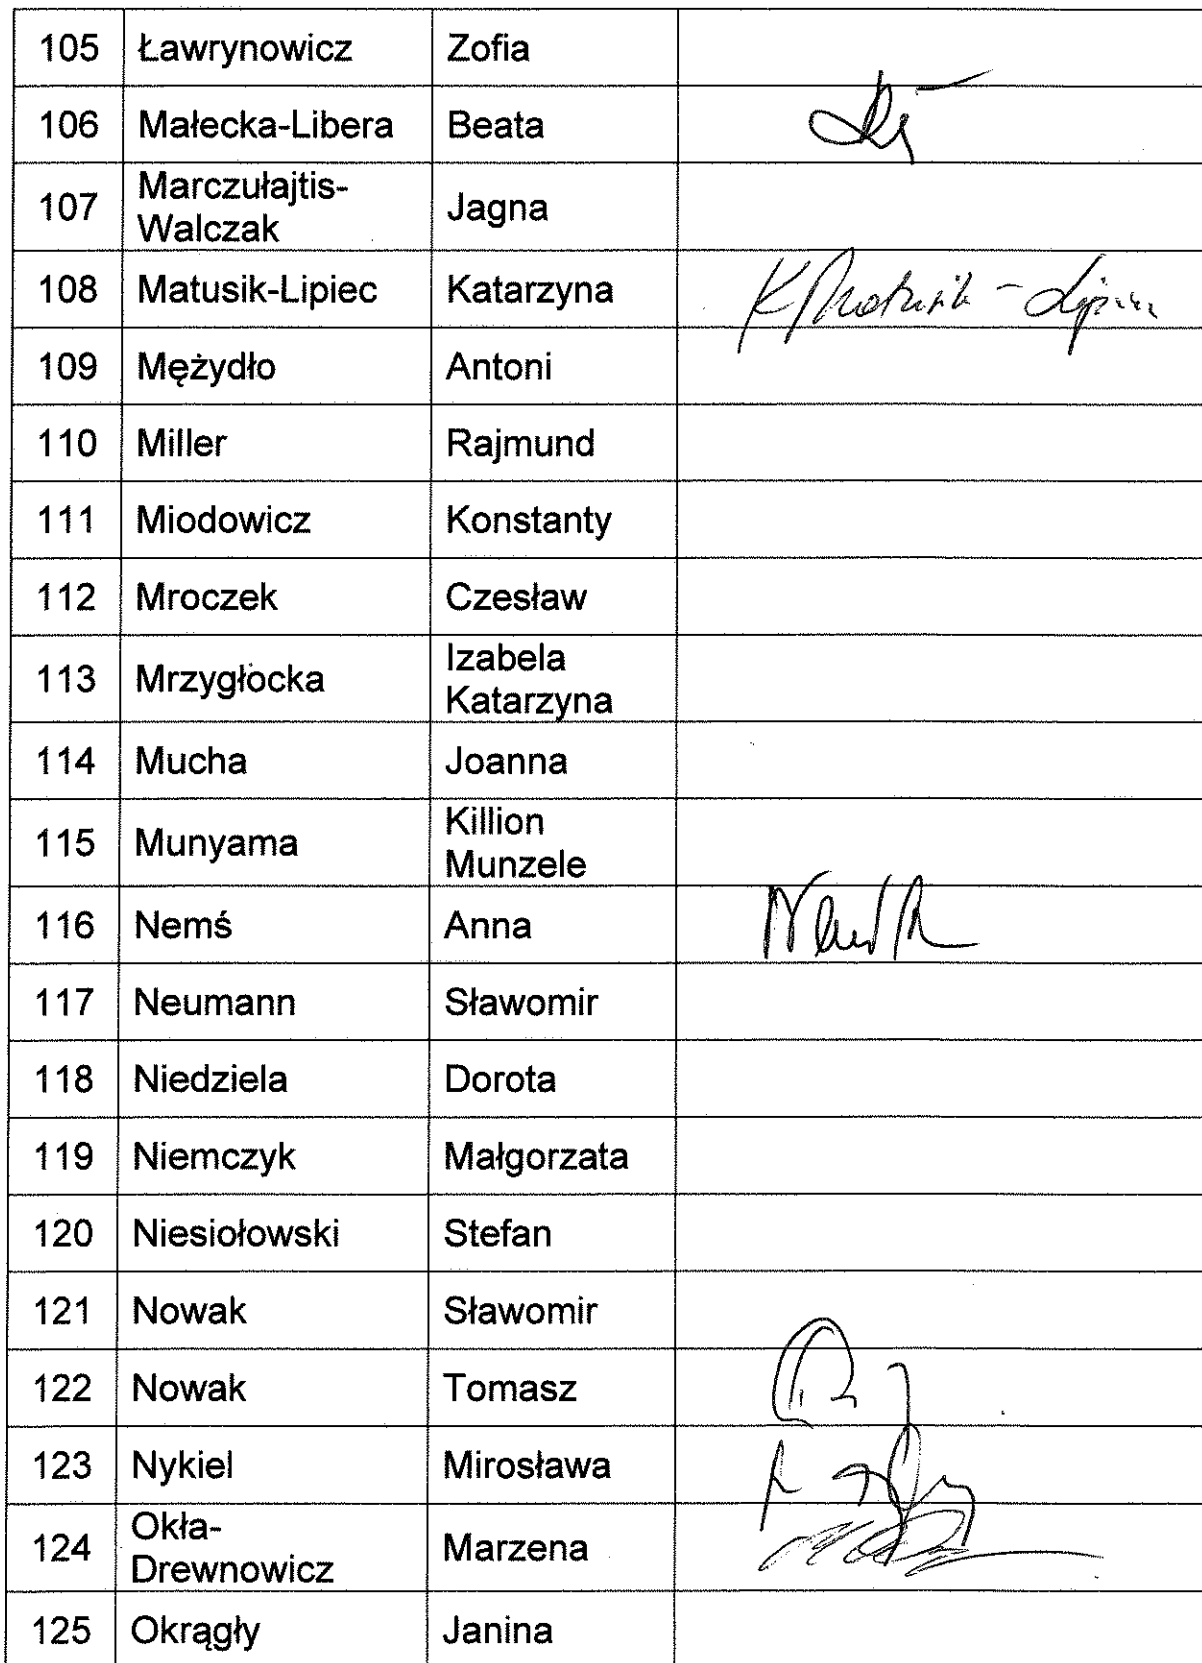 105 Ławrynowicz Zofia
106 Małecka-Libera Beata
107 Marczułajtis-
Walczak Jagna
108 Matusik-Lipiec Katarzyna K Matusik - Lipiec
109 Mężydło Antoni
110 Miller Rajmund
111 Miodowicz Konstanty
112 Mroczek Czesław
113 Mrzygłocka Izabela
Katarzyna
114 Mucha Joanna
115 Munyama Killion
Munzele
116 Nemś Anna
117 Neumann Sławomir
118 Niedziela Dorota
119 Niemczyk Małgorzata
120 Niesiołowski Stefan
121 Nowak Sławomir
122 Nowak Tomasz
123 Nykiel Mirosława
124 Okła-
Drewnowicz Marzena
125 Okrągły Janina